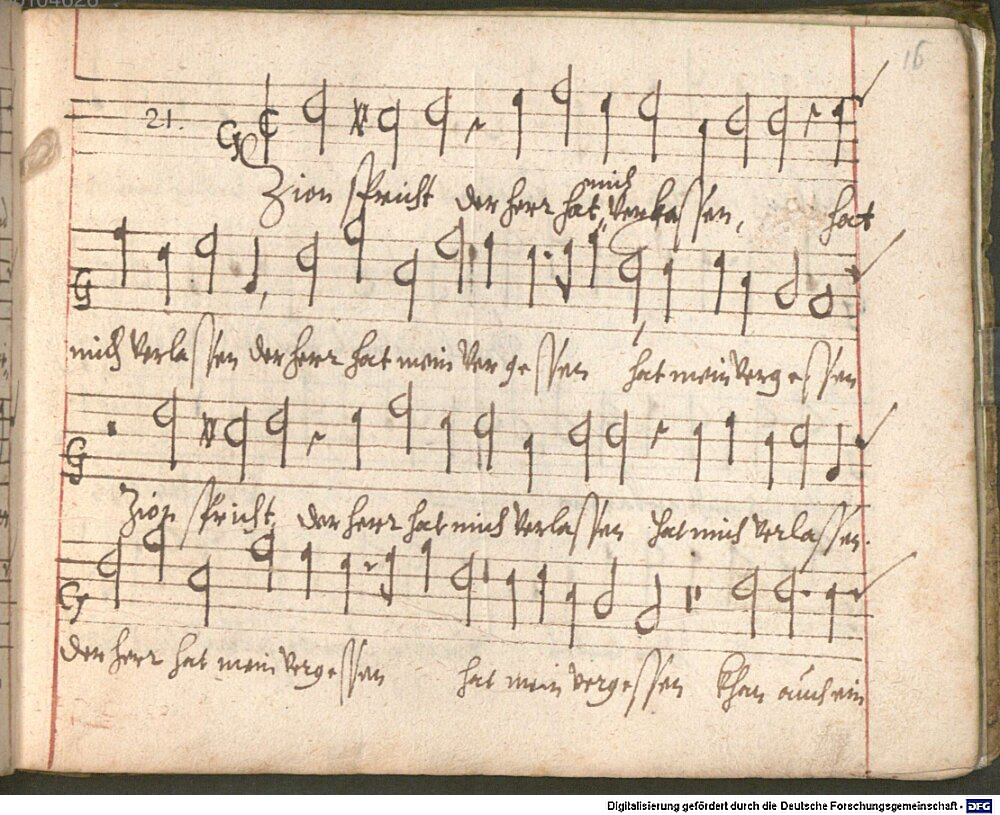 16
21.
mich
Zion spricht der herr hat verlassen, hat
mich verlassen der herr hat mein vergessen hat mein vergessen
Zion spricht, der herr hat mich verlassen hat mich verlassen.
der herr hat mein vergessen hat mein vergessen khan auch ein
Digitalisierung gefördert durch die Deutsche Forschungsgemeinschaft - DFG